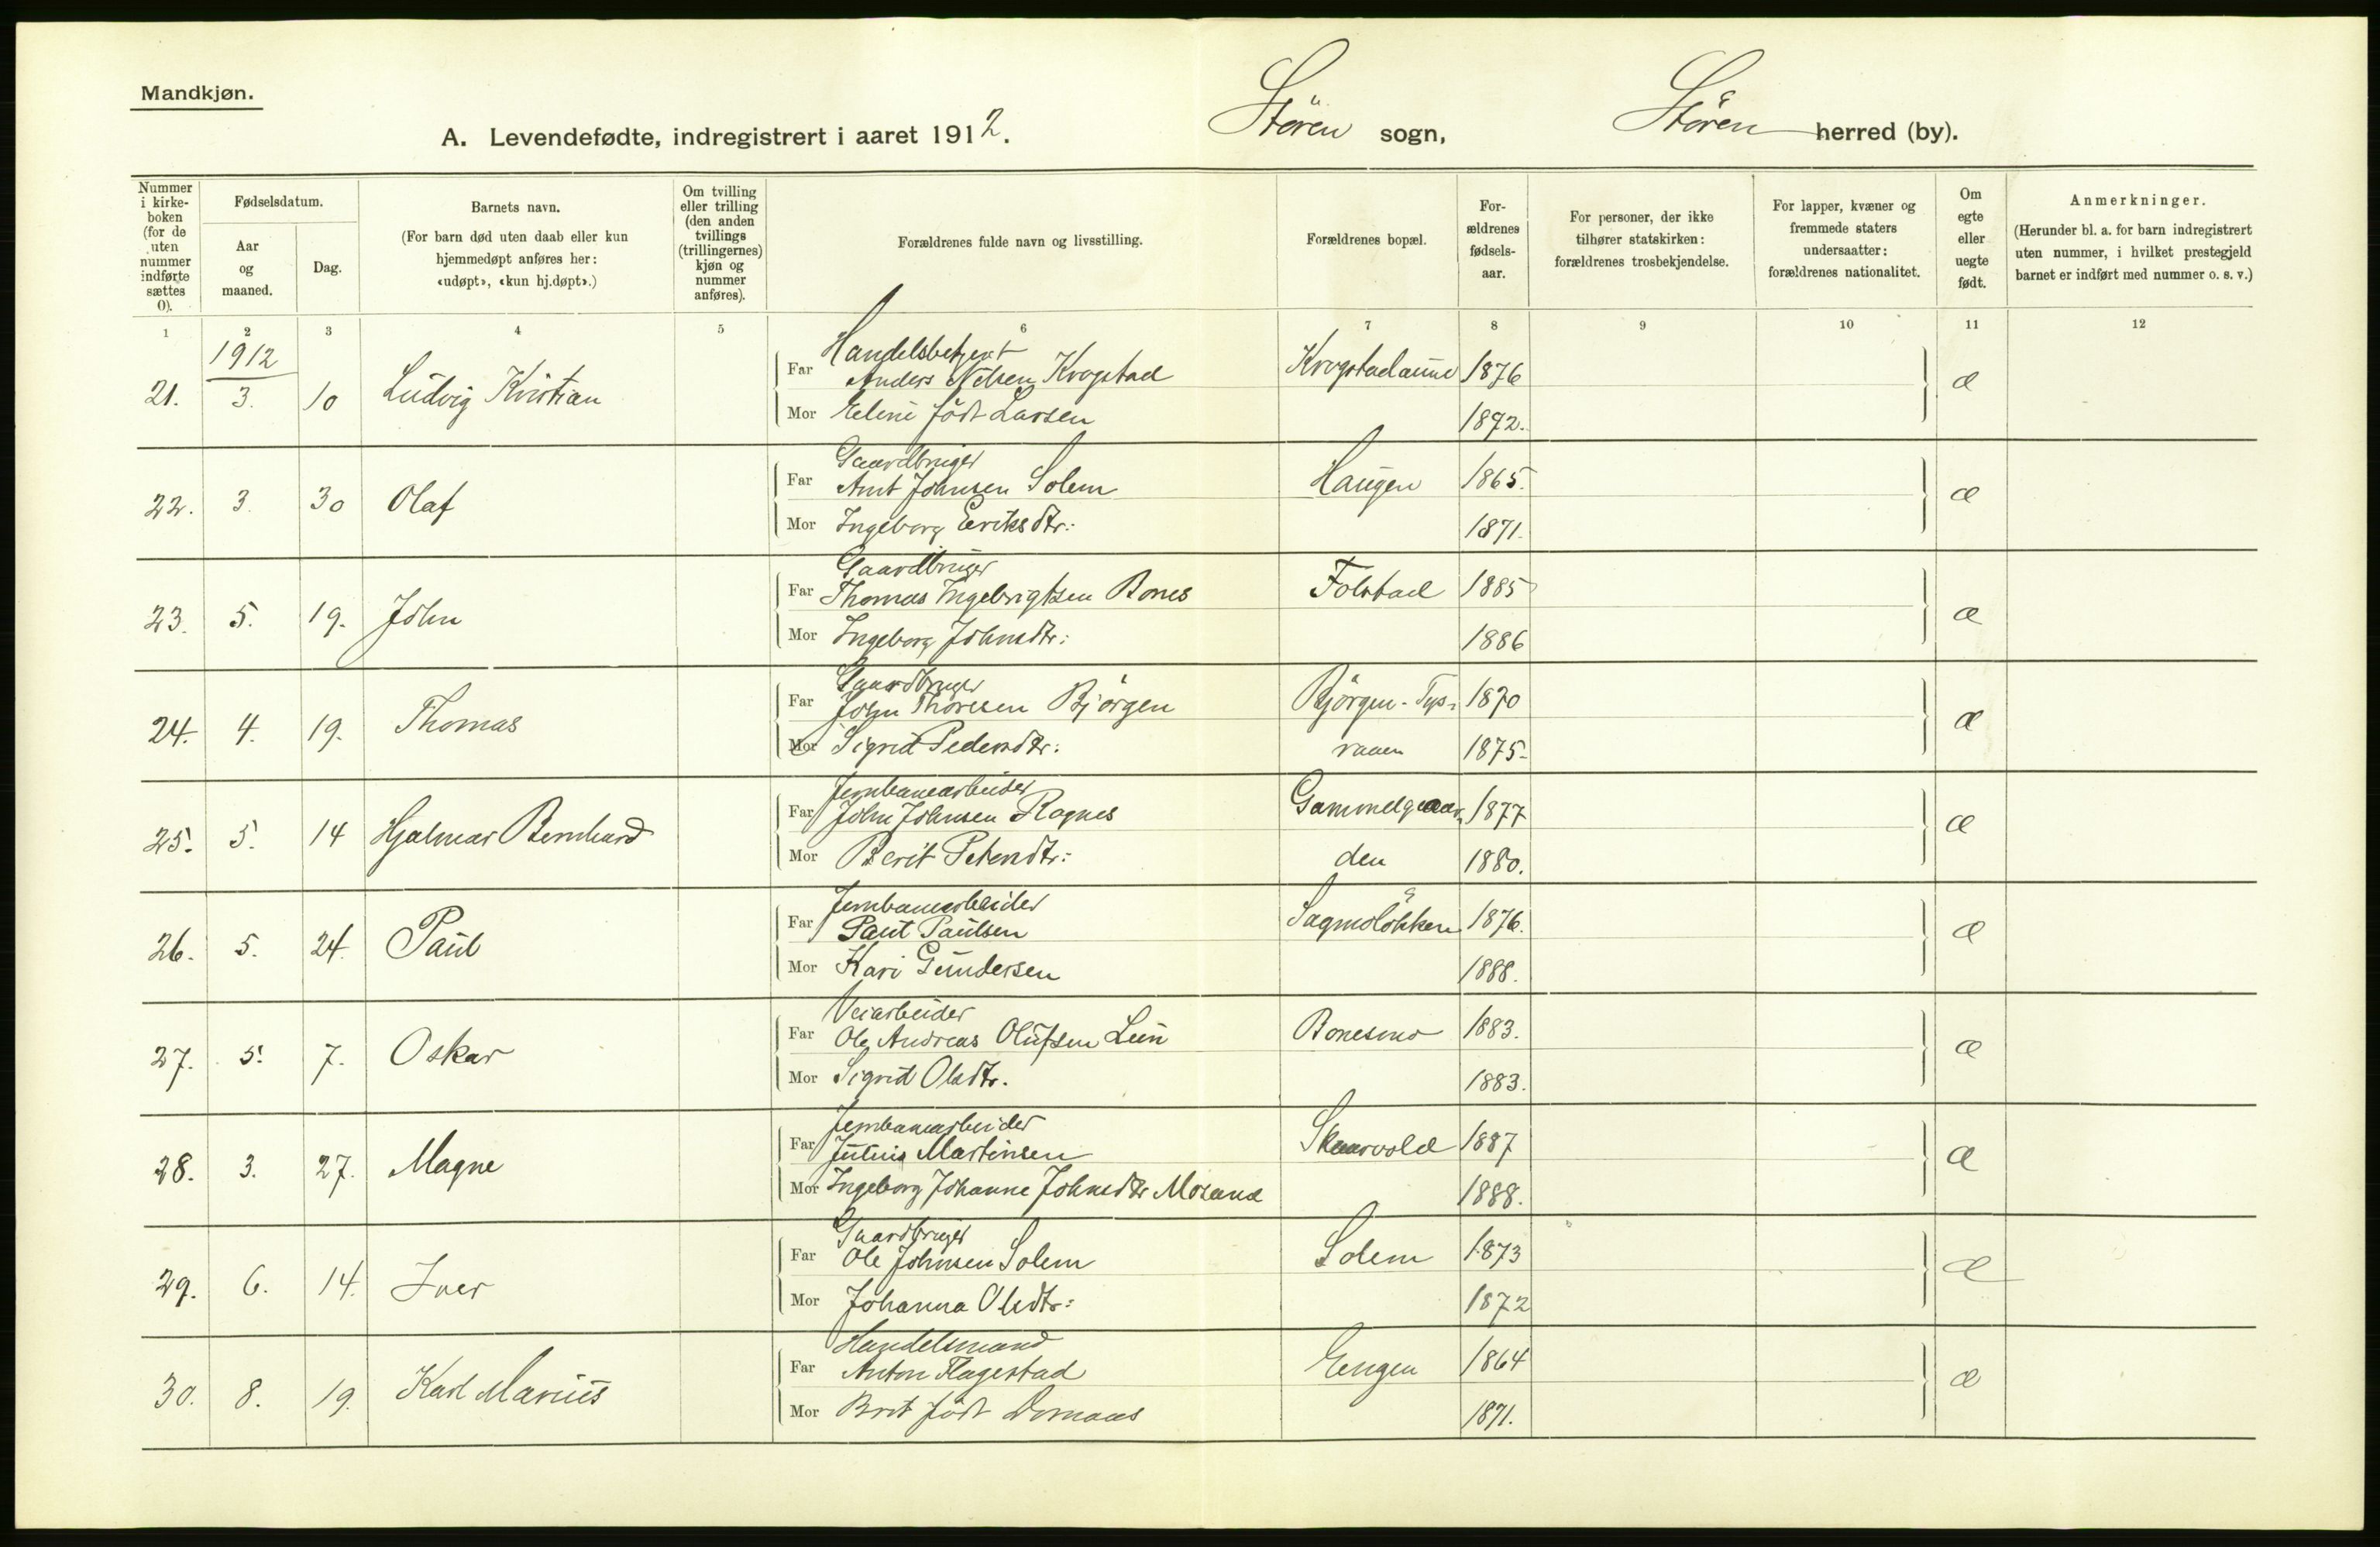 Mandkjøn.
A. Levendefødte, indregistrert i aaret 1912. Støren sogn, Støren herred (by).
Nummer i kirkeboken (for de uten nummer indførte sættes 0).
Fødselsdatum.
Aar og maaned.
Dag.
Barnets navn.
(For barn død uten daab eller kun hjemmedøpt anføres her: «udøpt», «kun hj.døpt».)
Om tvilling eller trilling (den anden tvillings (trillingernes) kjøn og nummer anføres).
Forældrenes fulde navn og livsstilling.
Forældrenes bopæl.
Forældrenes fødselsaar.
For personer, der ikke tilhører statskirken: forældrenes trosbekjendelse.
For lapper, kvæner og fremmede staters undersaatter: forældrenes nationalitet.
Om egte eller uegte født.
Anmerkninger.
(Herunder bl. a. for barn indregistrert uten nummer, i hvilket prestegjeld barnet er indført med nummer o. s. v.)
1 2 3 4 5 6 7 8 9 10 11 12
1912
Handelsbetjent
21. 3. 10 Ludvig Kristian Far Anders Nilsen Krogstad Krogstadaune 1876 æ
Mor Eline født Larsen 1872.
Gaardbruger
22. 3. 30 Olaf Far Arnt Johnsen Solem Haugen 1865. æ
Mor Ingeborg Eriksdtr: 1871.
Gaardbruger
23. 5. 19. John Far Thomas Ingebrigtsen Bones Folstad 1885 æ
Mor Ingeborg Johnsdtr: 1886
Gaardbruger
24. 4. 19. Thomas Far John Thoresen Bjørgen Bjørgen- 1870 æ
Mor Sigrid Pedersdtr: 1875.
Jernbanearbeider
25. 5. 14 Hjalmar Bernhard Far John Johnsen Rognes Gammelgaar- 1877 æ
Mor Berit Petersdtr: den 1880.
Jernbanearbeider
26. 5. 24. Paul Far Paul Paulsen Sagmoløkken 1876. æ
Mor Kari Gundersen 1888.
Veiarbeider
27. 5. 7. Oskar Far Ole Andreas Olufsen Lein Bonesmo 1883. æ
Mor Sigrid Olsdtr. 1883.
Jernbanearbeider
28. 3. 27. Magne Far Julius Martinsen Skaarvold 1887 æ
Mor Ingeborg Johanne Johnsdtr Moland 1888.
Gaardbruger
29. 6. 14. Iver Far Ole Johnsen Solem Solem 1873 æ
Mor Johanna Olsdtr: 1872
Handelsmand
30. 8. 19. Karl Marius Far Anton Flagestad Engen 1864 æ
Mor Brit født Domaas 1871.